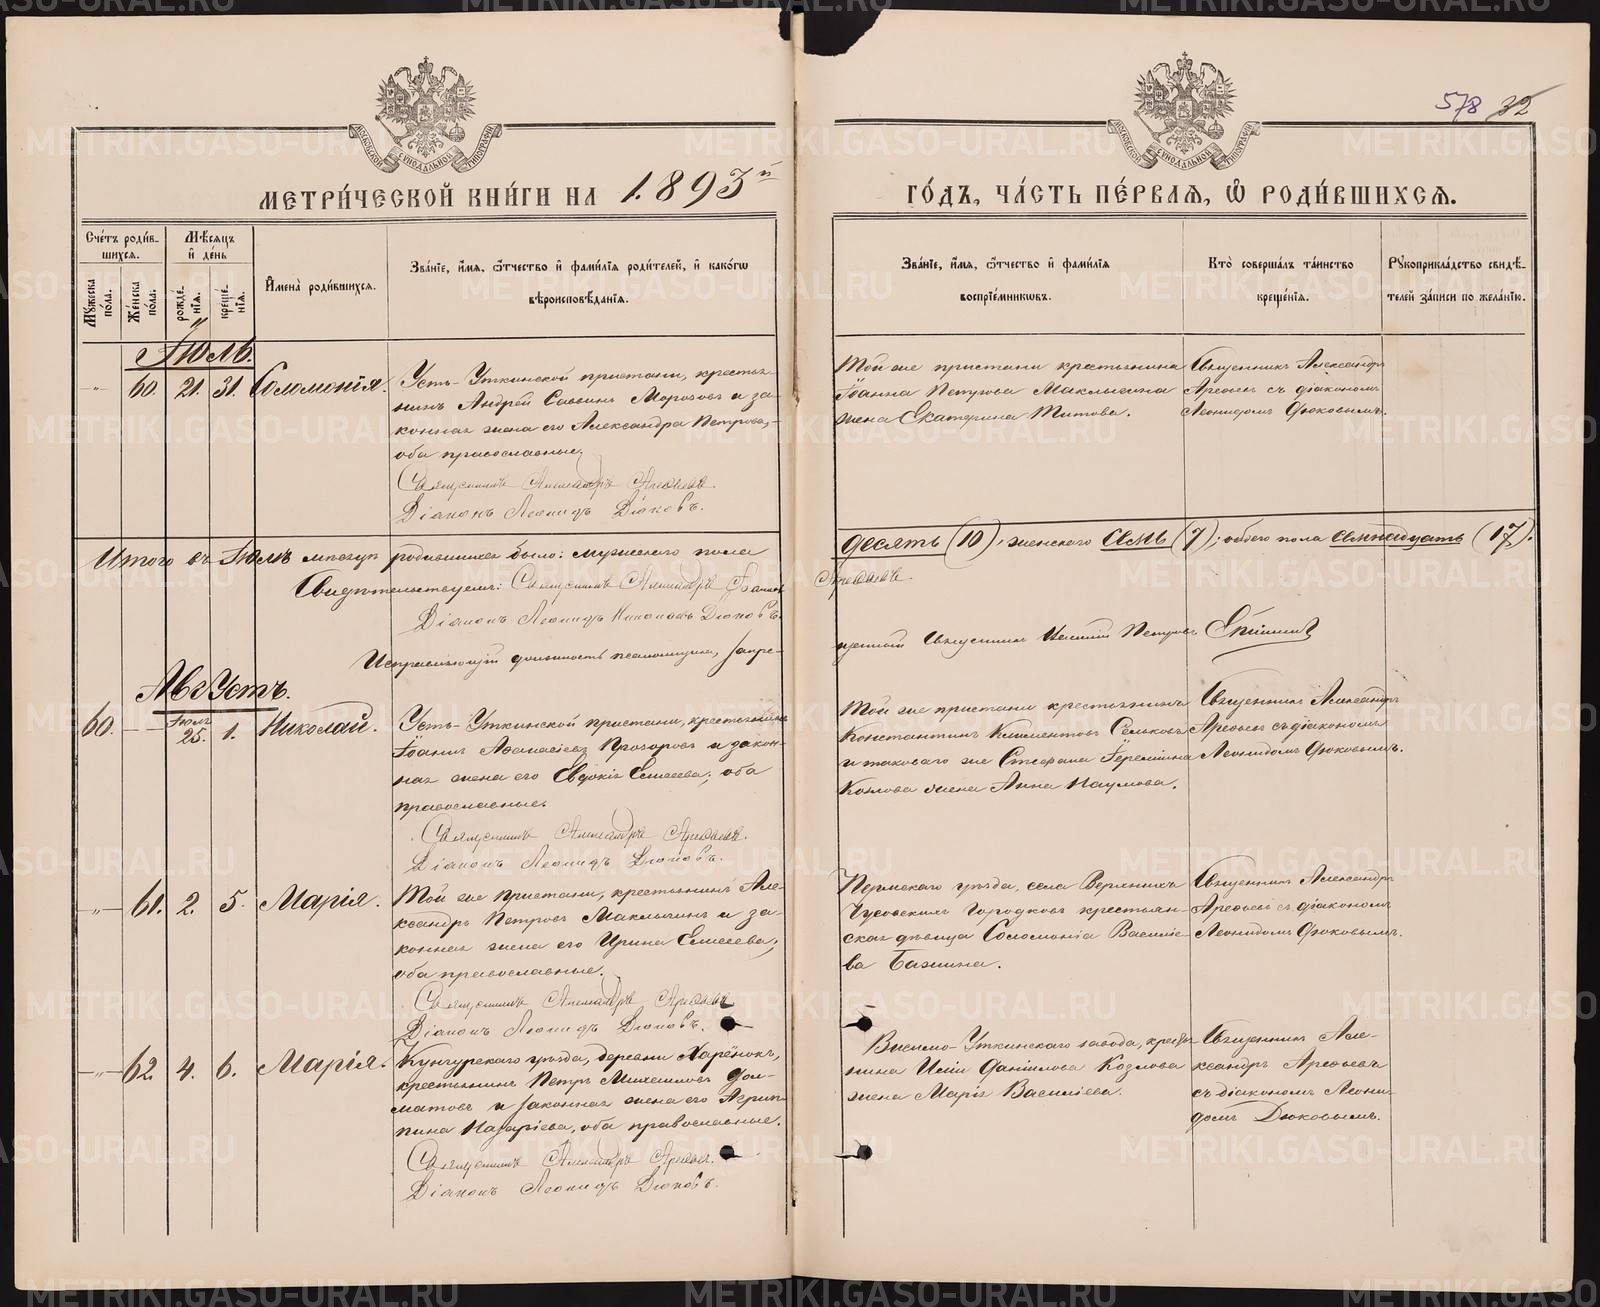 578 32
МЕТРИ́ЧЕСКОЙ КНИ́ГИ НА 1893й
ГО́ДЪ, ЧА́СТЬ ПЕ́РВАЯ, Ѡ РОДИ́ВШИХСЯ.
Сче́тъ роди́в-
шихся.
Мꙋ́жеска по́ла.
Же́нска по́ла.
Мѣ́сяцъ и де́нь
рожде́-
нія.
креще́-
нія.
Имена̀ роди́вшихся.
Зва́ніе, и́мя, ѻ́тчество и фами́лія роди́телей, и како́гѡ
вѣроисповѣ́данія.
Зва́ніе, и́мя, ѻ́тчество и фами́лія
воспріе́мниковъ.
Кто̀ соверша́лъ та́инство
креще́нія.
Рꙋкоприкла́дство свидѣ́-
телей за́писи по жела́нію.
Іюль.
60. 21. 31. Соломонія.
Усть-Уткинской пристани, кресть-
нинъ Андрей Саввинъ Морозовъ и за-
конная жена его Александра Петрова,
оба православные.
Священникъ Александръ Арефьевъ.
Діаконъ Леонидъ Дюковъ.
Той же пристани крестьянина
Іоанна Петрова Маклыгина
жена Екатерина Титова.
Священникъ Александръ
Арефьевъ съ діакономъ
Леонидомъ Дюковымъ.
Итого въ Іюлѣ мѣсяцѣ родившихся было: мужескаго пола
десять (10), женскаго семь (7), обоего пола семнадцать (17).
Свидѣтельствуемъ: Священникъ Александръ Іоанновъ
Арефьевъ.
Діаконъ Леонидъ Николаевъ Дюковъ.
Исправляющій должность псаломщика, запре-
щенный Священникъ Петровъ
Августъ.
60. Іюля 25. 1. Николай.
Усть-Уткинской пристани, крестьянинъ
Іоаннъ Аѳанасіевъ Прозоровъ и закон-
ная жена его Евдокія Елисеева; оба
православные.
Священникъ Александръ Арефьевъ.
Діаконъ Леонидъ Дюковъ.
Той же пристани крестьянинъ
Константинъ Климентовъ
и таковаго же Стефана Іереміина
Козлова жена Анна Наумова.
Священникъ Александръ
Арефьевъ съ діакономъ
Леонидомъ Дюковымъ.
61. 2. 5. Марія.
Той же пристани, крестьянинъ Але-
ксандръ Петровъ Маклыгинъ и за-
конная жена его Ирина Елисеева,
оба православные.
Священникъ Александръ Арефьевъ
Діаконъ Леонидъ Дюковъ.
Пермскаго уѣзда, села Верхнихъ
Чусовскихъ Городковъ крестьян-
ская дѣвица Соломонія Василіе-
ва Бажина.
Священникъ Александръ
Арефьевъ съ діакономъ
Леонидомъ Дюковымъ.
62. 4. 6. Марія.
Кунгурскаго уѣзда, деревни
крестьянинъ Петръ Михаиловъ Дол-
матовъ и законная жена его Агрип-
пина Назаріева, оба православные.
Священникъ Александръ Арефьевъ.
Діаконъ Леонидъ Дюковъ.
Василіо-Уткинскаго завода, кресть-
нина Иліи Даніилова Козлова
жена Марія Василіева.
Священникъ Але-
ксандръ Арефьевъ
съ діакономъ Леони-
домъ Дюковымъ.
METRIKI.GASO-URAL.RU